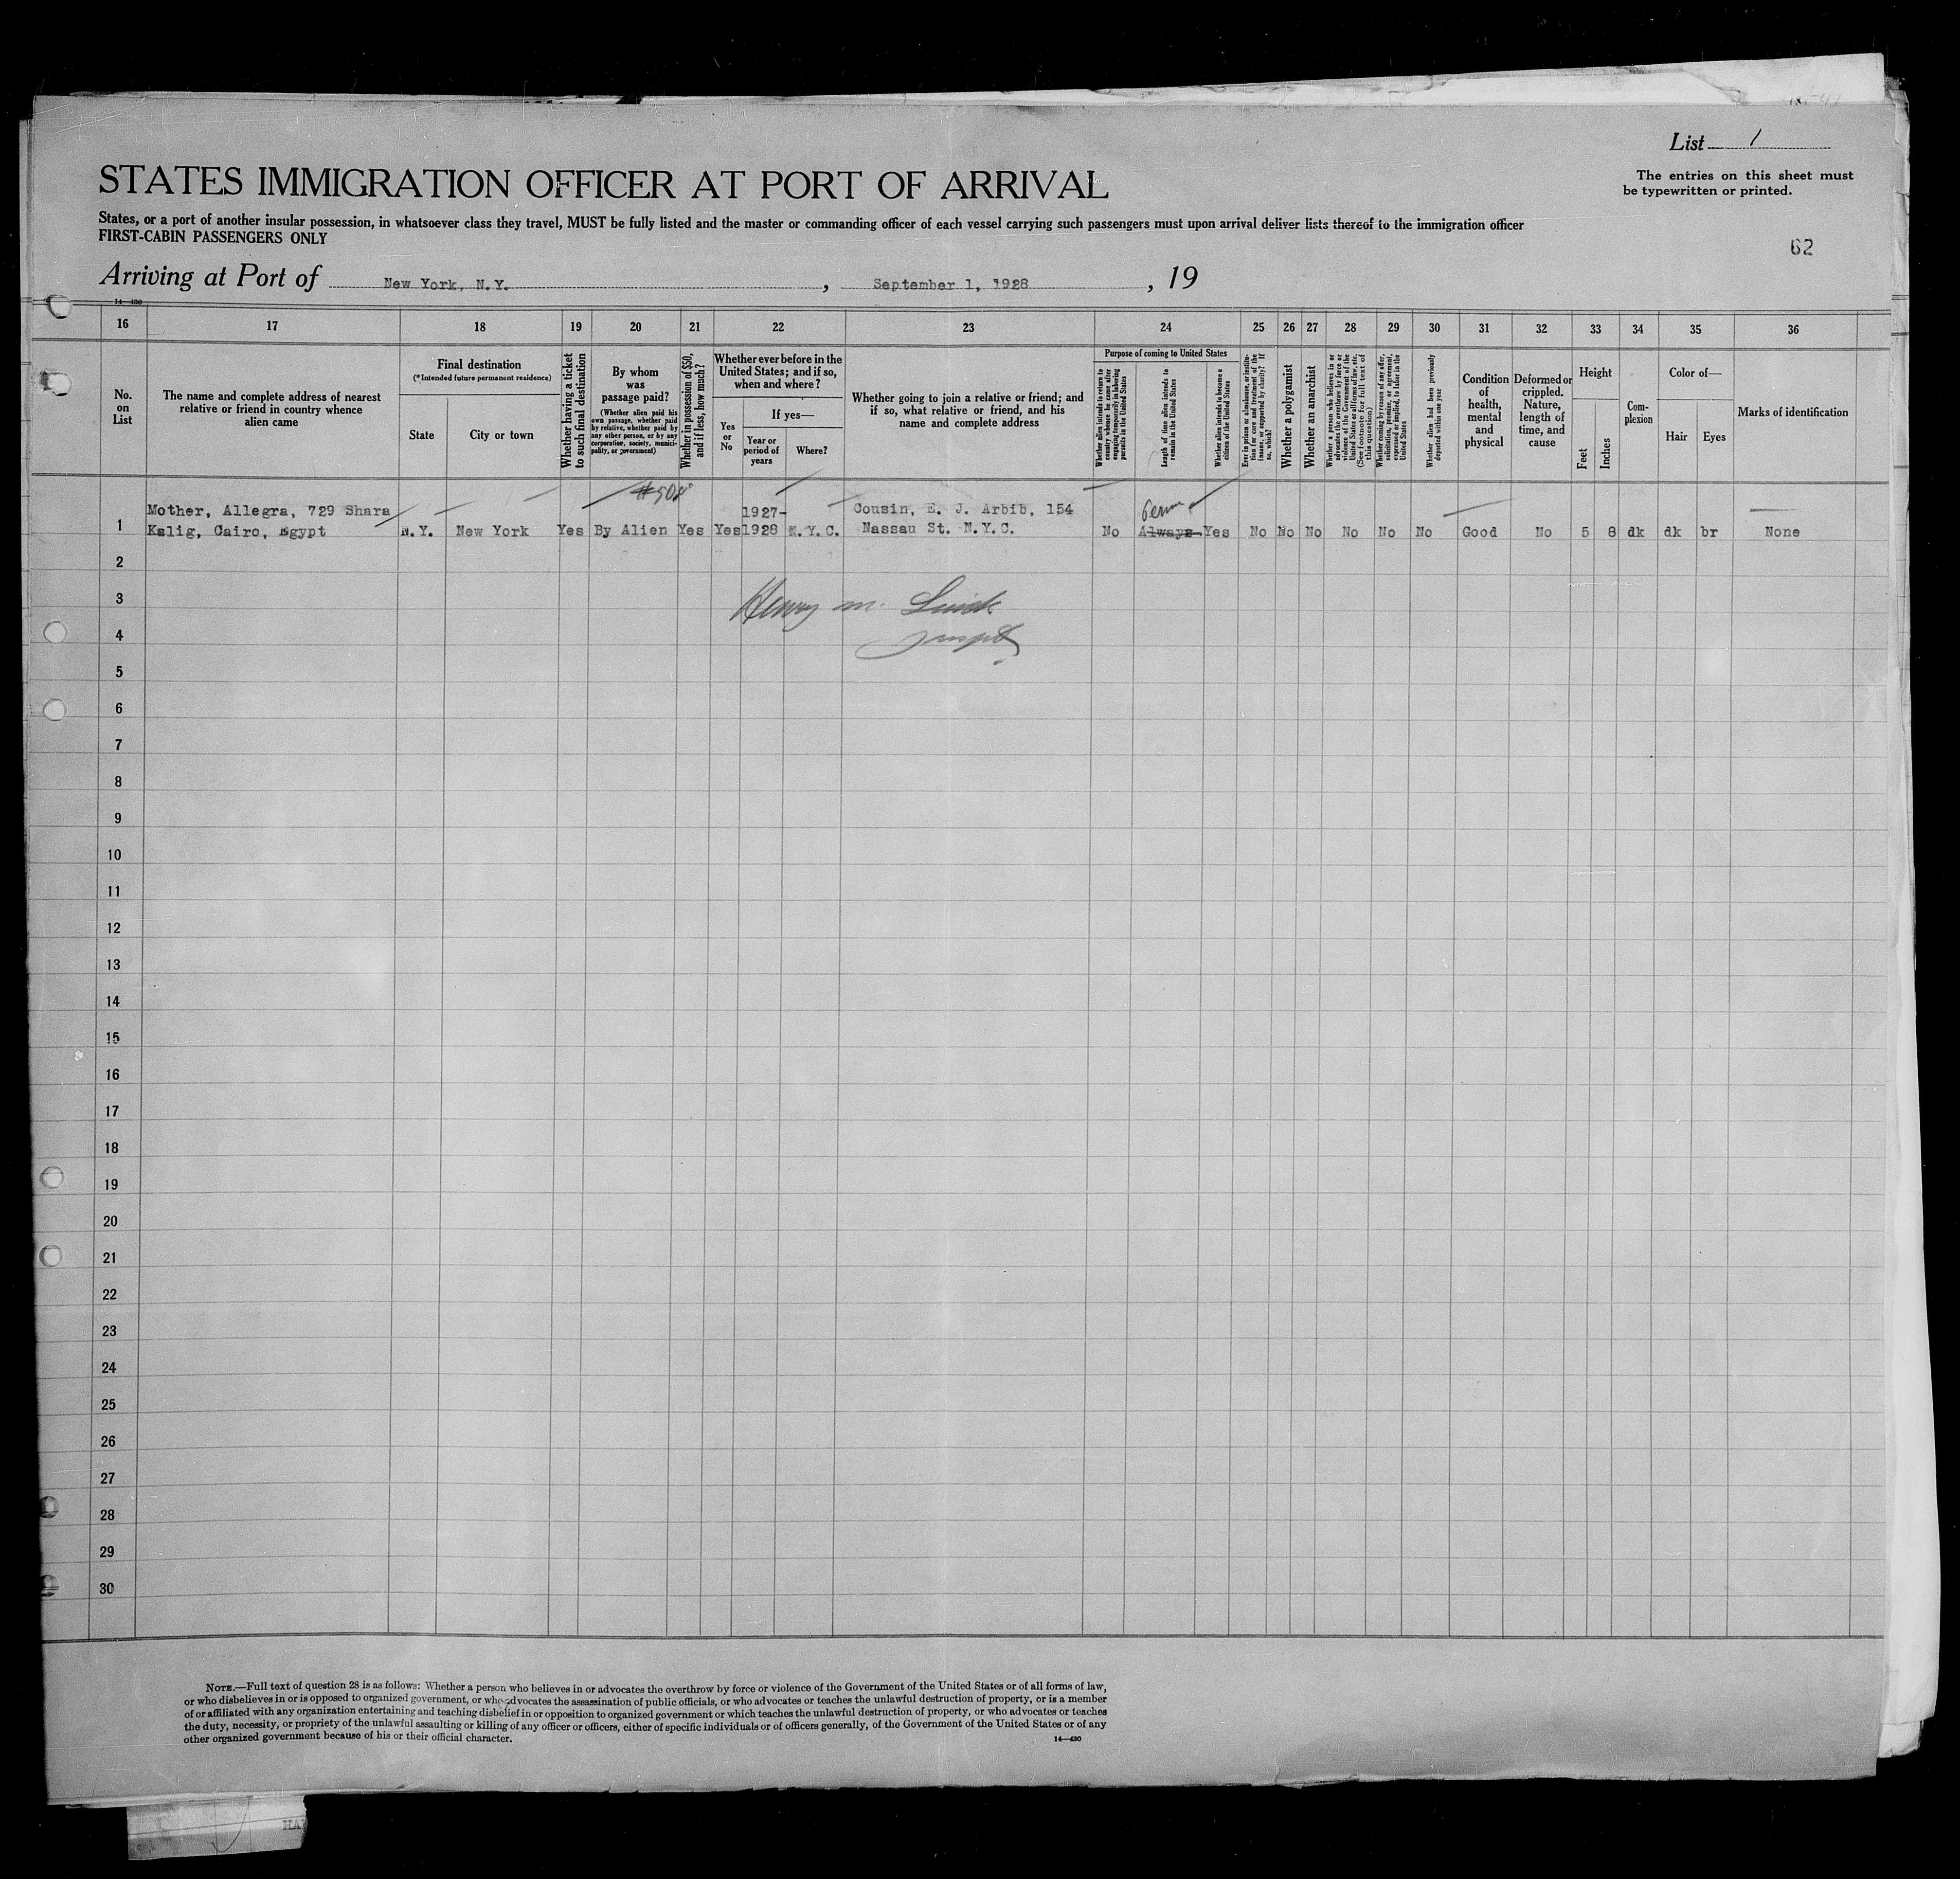 List 1
STATES IMMIGRATION OFFICER AT PORT OF ARRIVAL
The entries on this sheet must
be typewritten or printed.
States, or a port of another insular possession, in whatsoever class they travel, MUST be fully listed and the master or commanding officer of each vessel carrying such passengers must upon arrival deliver lists thereof to the immigration officer
FIRST-CABIN PASSENGERS ONLY
62
Arriving at Port of New York, N.Y. , September 1, 1928 , 19
14—430
16 17 18 19 20 21 22 23 24 25 26 27 28 29 30 31 32 33 34 35 36
No.
on
List
The name and complete address of nearest
relative or friend in country whence
alien came
Final destination
(*Intended future permanent residence)
State
City or town
Whether having a ticket
to such final destination
By whom
was
passage paid?
(Whether alien paid his
own passage, whether paid
by relative, whether paid by
any other person, or by any
corporation, society, munici-
pality, or government)
Whether in possession of $50,
and if less, how much?
Whether ever before in the
United States; and if so,
when and where?
Yes
or
No
If yes—
Year or
period of
years
Where?
Whether going to join a relative or friend; and
if so, what relative or friend, and his
name and complete address
Purpose of coming to United States
Whether alien intends to return to
country whence he came after
engaging temporarily in laboring
pursuits in the United States
Length of time alien intends to
remain in the United States
Whether alien intends to become a
citizen of the United States
Ever in prison or almshouse, or institu-
tion for care and treatment of the
insane, or supported by charity? If
so, which?
Whether a polygamist
Whether an anarchist
Whether a person who believes in or
advocates the overthrow by force or
violence of the Government of the
United States or all forms of law, etc.
(See footnote for full text of
this question)
Whether coming by reason of any offer,
solicitation, promise, or agreement,
expressed or implied, to labor in the
United States
Whether alien had been previously
deported within one year
Condition
of
health,
mental
and
physical
Deformed or
crippled.
Nature,
length of
time, and
cause
Height
Feet
Inches
Com-
plexion
Color of—
Hair
Eyes
Marks of identification
#508
Mother, Allegra, 729 Shara 1927- Cousin, E. J. Arbib, 154 Perm
1 Kalig, Cairo, Egypt N.Y. New York Yes By Alien Yes Yes 1928 N.Y.C. Nassau St. N.Y.C. No Always Yes No No No No No No Good No 5 8 dk dk br None
2
3 Henry M.
4
5
6
7
8
9
10
11
12
13
14
15
16
17
18
19
20
21
22
23
24
25
26
27
28
29
30
NOTE.—Full text of question 28 is as follows: Whether a person who believes in or advocates the overthrow by force or violence of the Government of the United States or of all forms of law,
or who disbelieves in or is opposed to organized government, or who advocates the assassination of public officials, or who advocates or teaches the unlawful destruction of property, or is a member
of or affiliated with any organization entertaining and teaching disbelief in or opposition to organized government or which teaches the unlawful destruction of property, or who advocates or teaches
the duty, necessity, or propriety of the unlawful assaulting or killing of any officer or officers, either of specific individuals or of officers generally, of the Government of the United States or of any
other organized government because of his or their official character.
14—430
HA